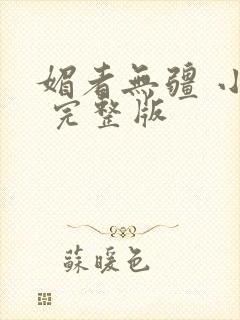 媚者無疆 小
完整版
蘇暖色